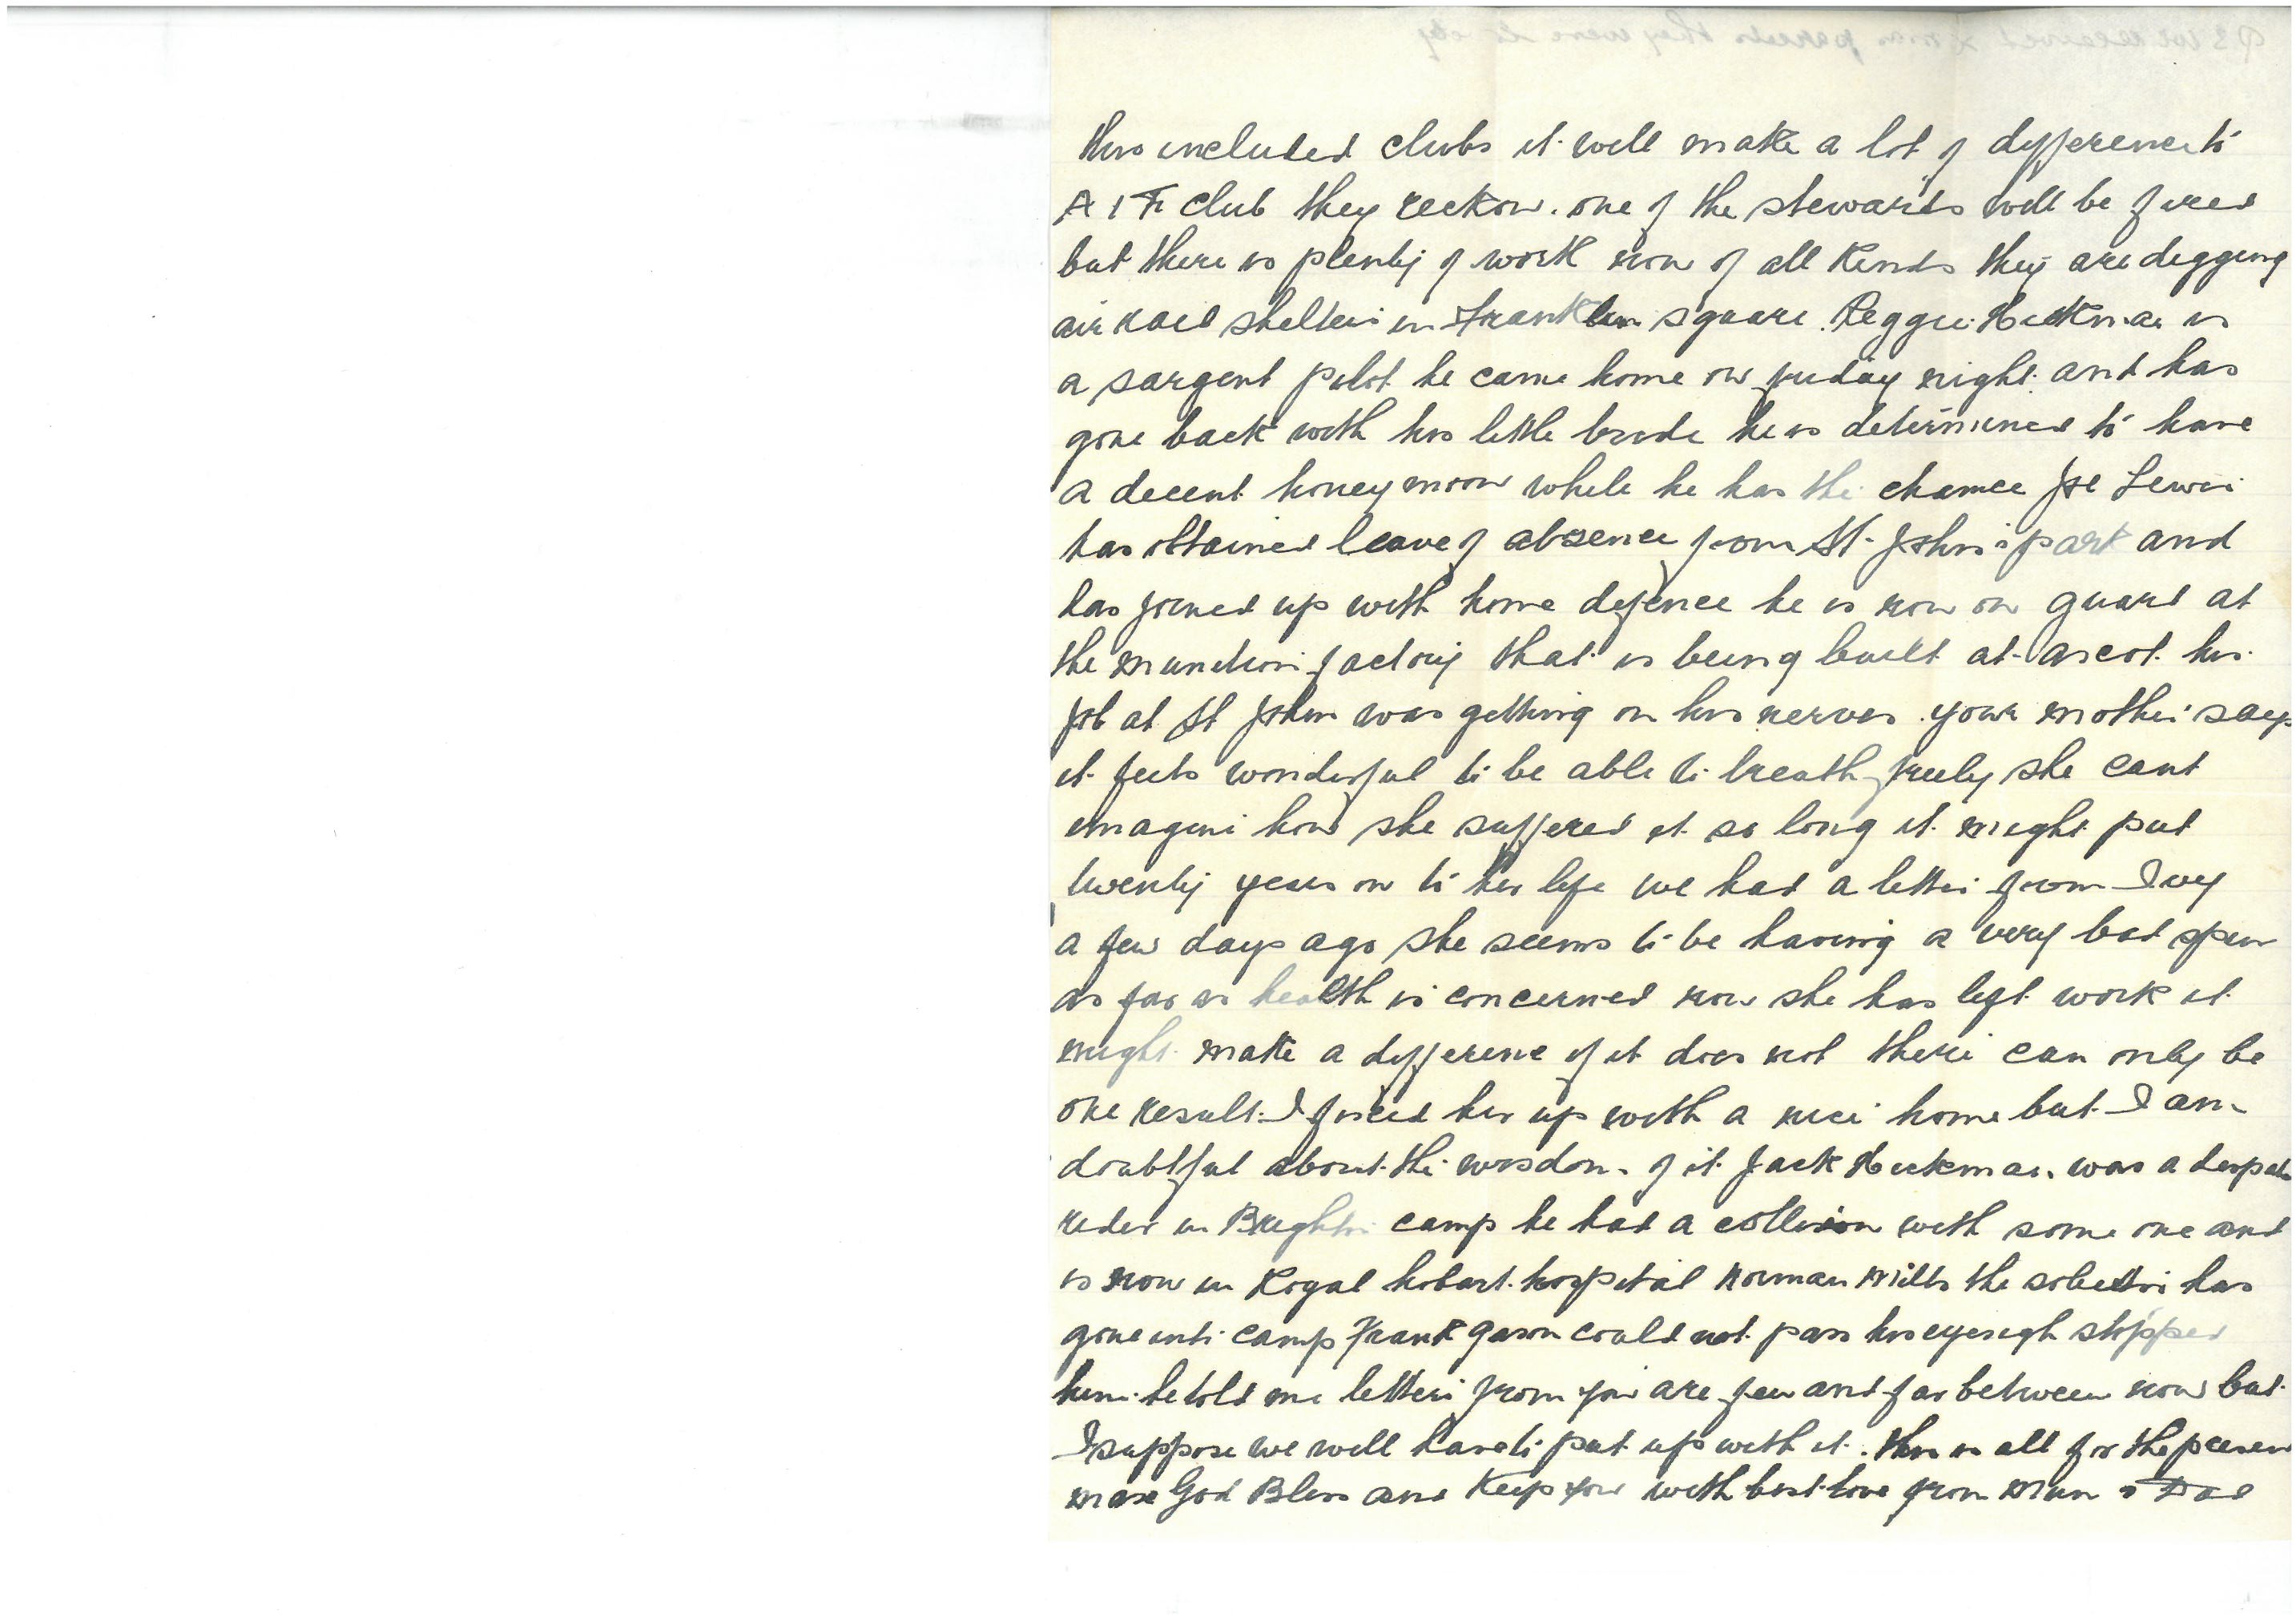 this included clubs it will make a lot of difference to
A I F club they reckon. one of the stewards will be fired
but there is plenty of work now of all kinds they are digging
air raid shelters in Franklin square. Reggie Hickman is
a sargent pilot he came home on friday night and has
gone back with his little bride he is determined to have
a decent honeymoon while he has the chance Joe Lewis
has obtained leave of absence from St. Johns park and
has joined up with home defence he is now on guard at
the munition factory that is being built at ascot his
job at St Johns was getting on his nerves. your mother says
it feels wonderful to be able to breath freely she cant
imagine how she suffered it so long it might put
twenty years on to her life we had a letter from Ivy
a few days ago she seems to be having a very bad spin
as far as health is concerned now she has left work it
might make a difference if it does not there can only be
one result. I fixed her up with a nice home but I am
doubtful about the wisdom of it Jack Hickman was a despatch
rider in Brighton camp he had a collision with some one and
is now in Royal hobart hospital Norman Mills the solicitor has
gone into camp Frank gason could not pass his eyesigh stopped
him. he told me letters from you are few and far between now but
I suppose we will have to put up with it. this is all for the presen
more God Bless and Keep you with best love from Mum & Dad